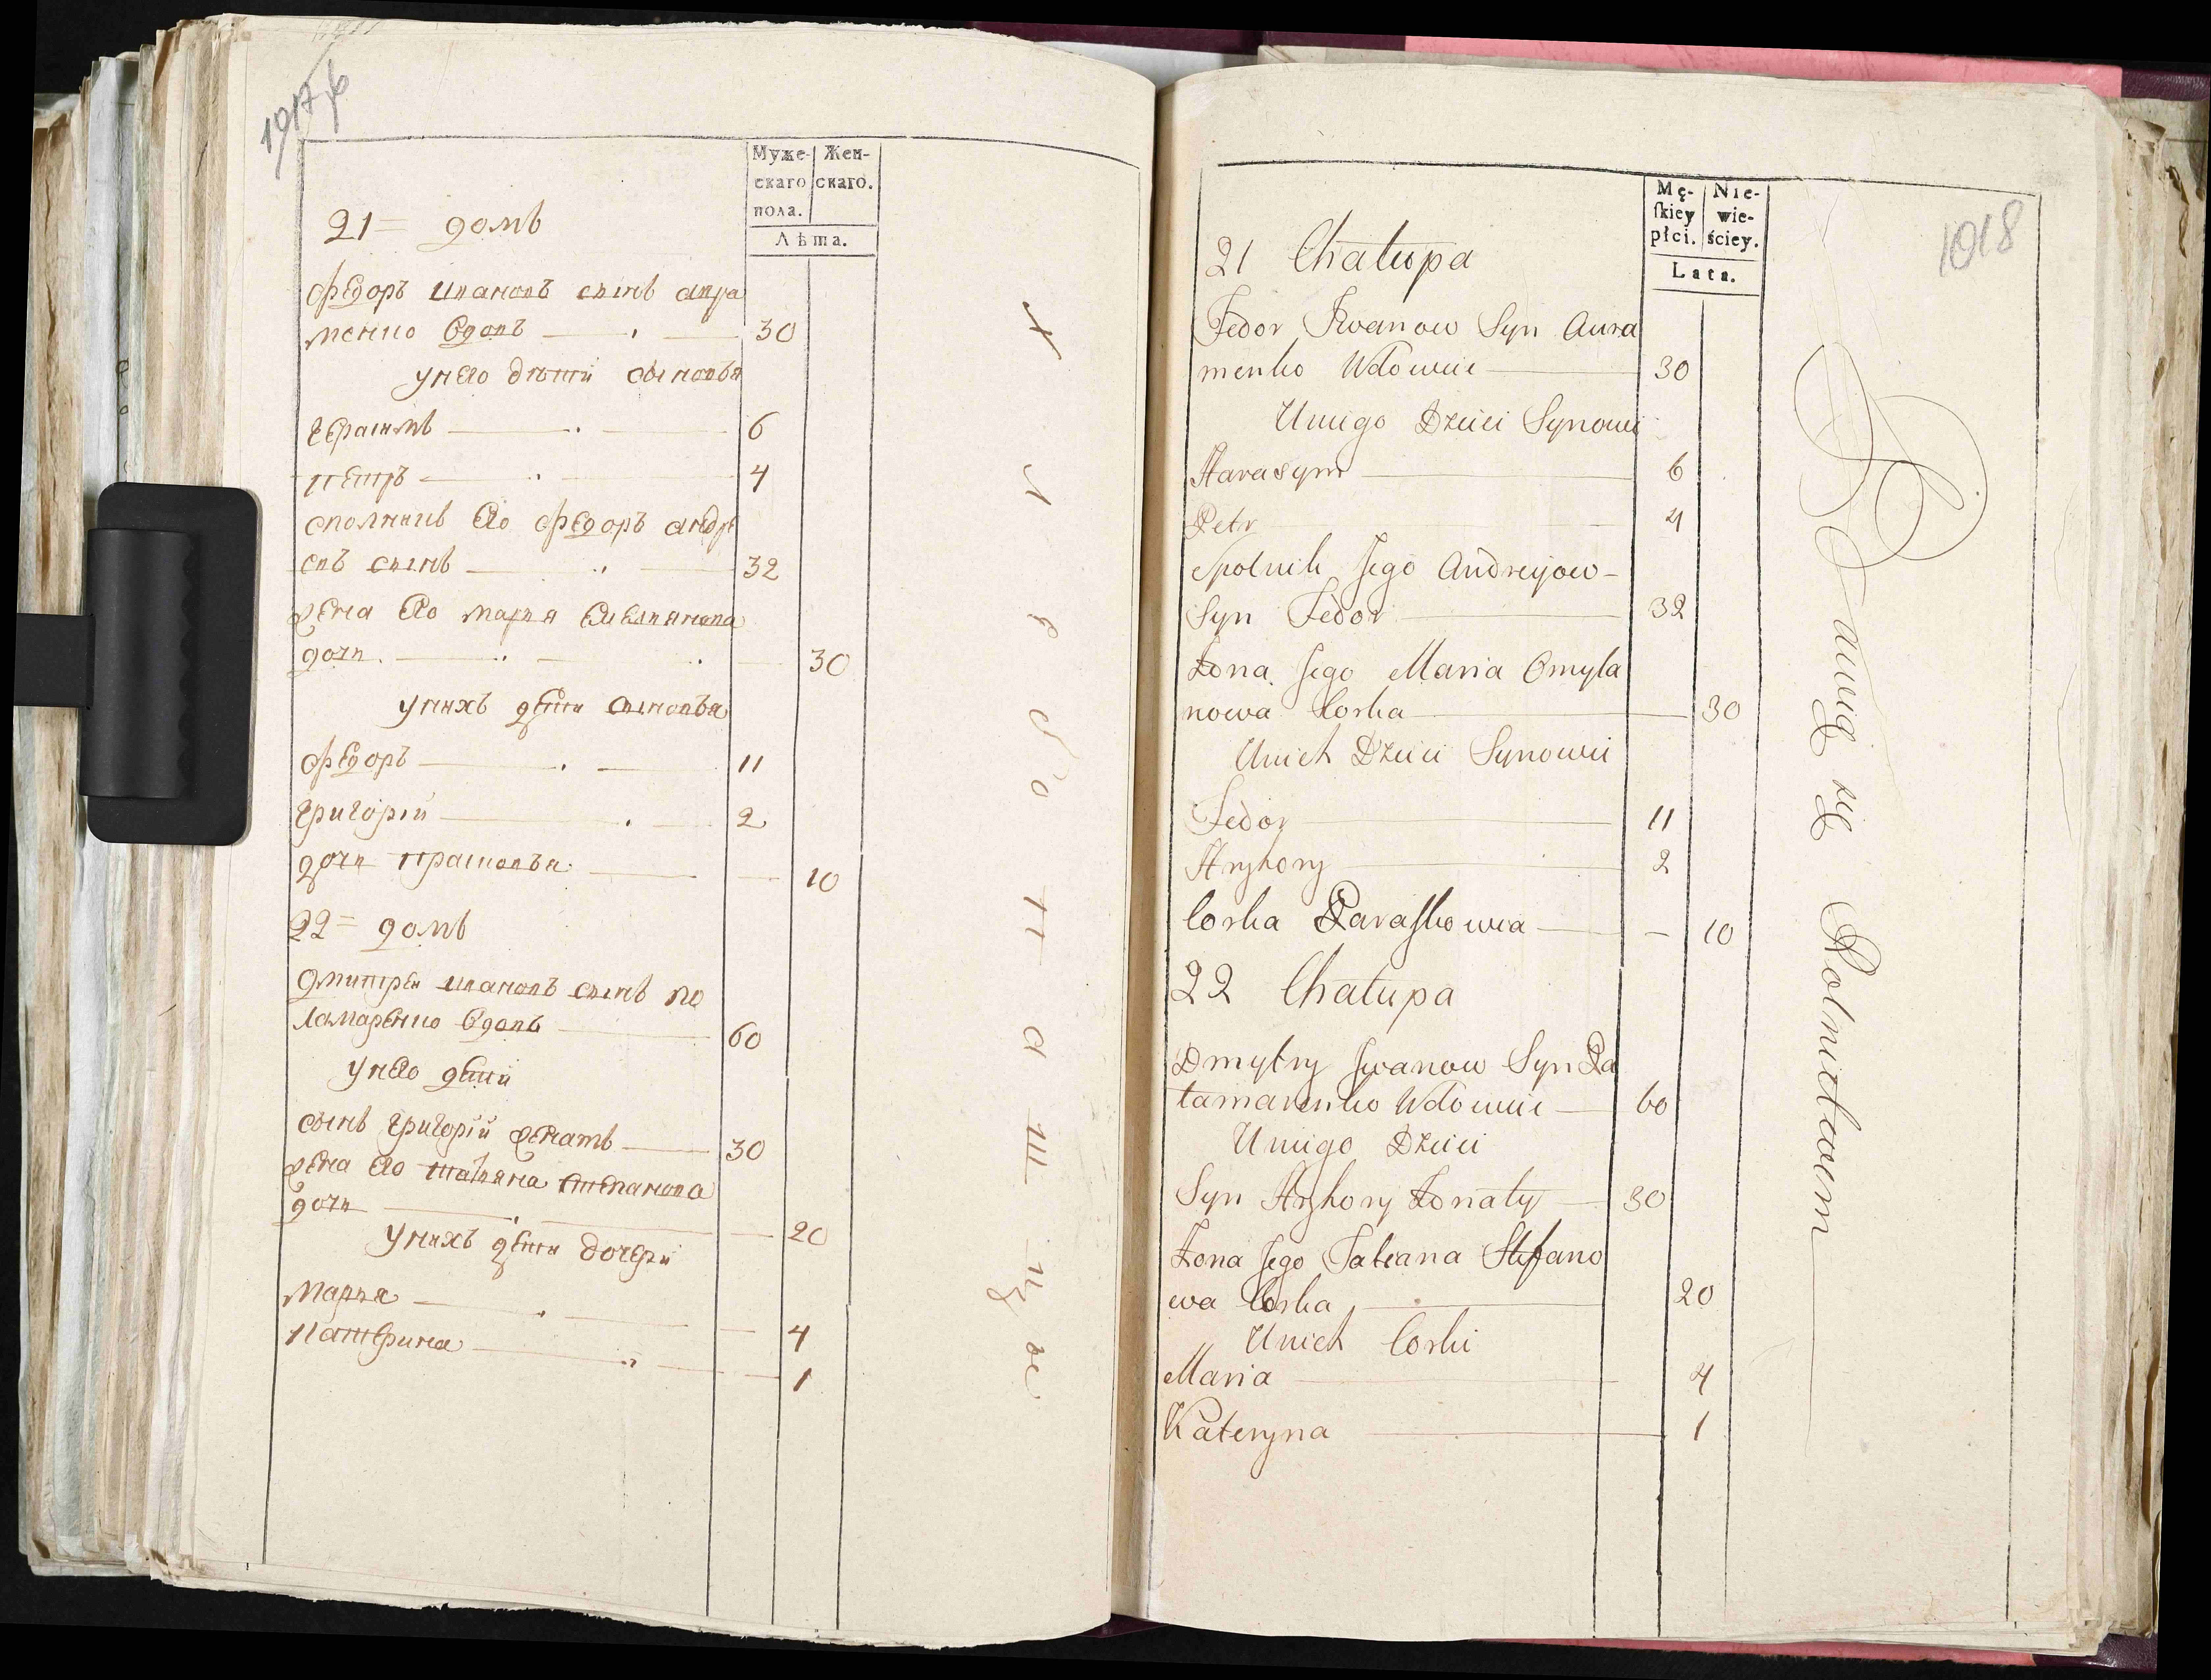 1017 об
Муже-
скаго
пола.
Жен-
скаго.
Лѣта.
21= домъ
Федоръ ивановъ сынъ авра
менко вдовъ 30
унего дѣти сыновья
герасимъ 6
петръ 4
сполникъ его федоръ андре
евъ сынъ 32
жена его марья емельянова
дочь 30
унихъ дети сыновья
федоръ 11
григорій 2
дочь прасковья 10
22= домъ
дмитрей ивановъ сынъ по
ламаренко вдовъ 60
унего дети
сынъ григорій женатъ 30
жена его татьяна степанова
дочь 20
унихъ дети дочери
марья 4
катерина 1
хлебопашцы
1018
Mę-
skiey
płci.
Nie-
wie-
ściey.
Lata.
21 Chałupa
Fedor Iwanow Syn Awra
menko Wdowiec 30
Uniego Dzieci Synowie
Harasym 6
Petr 4
Spolnik Jego Andreyow-
Syn Fedor 32
Żona Jego Maria Omyla
nowa Corka 30
Unich Dzieci Synowie
Fedor 11
Hryhory 2
Corka Paraskowia 10
22 Chałupa
Dmytry Iwanow Syn Pa
łamarenko Wdowiec 60
Uniego Dzieci
Syn Hryhory Żonaty 30
Żona Jego Tatiana Stefano
wa Corka 20
Unich Corki
Maria 4
Kateryna 1
Bawią się Rolnictwem